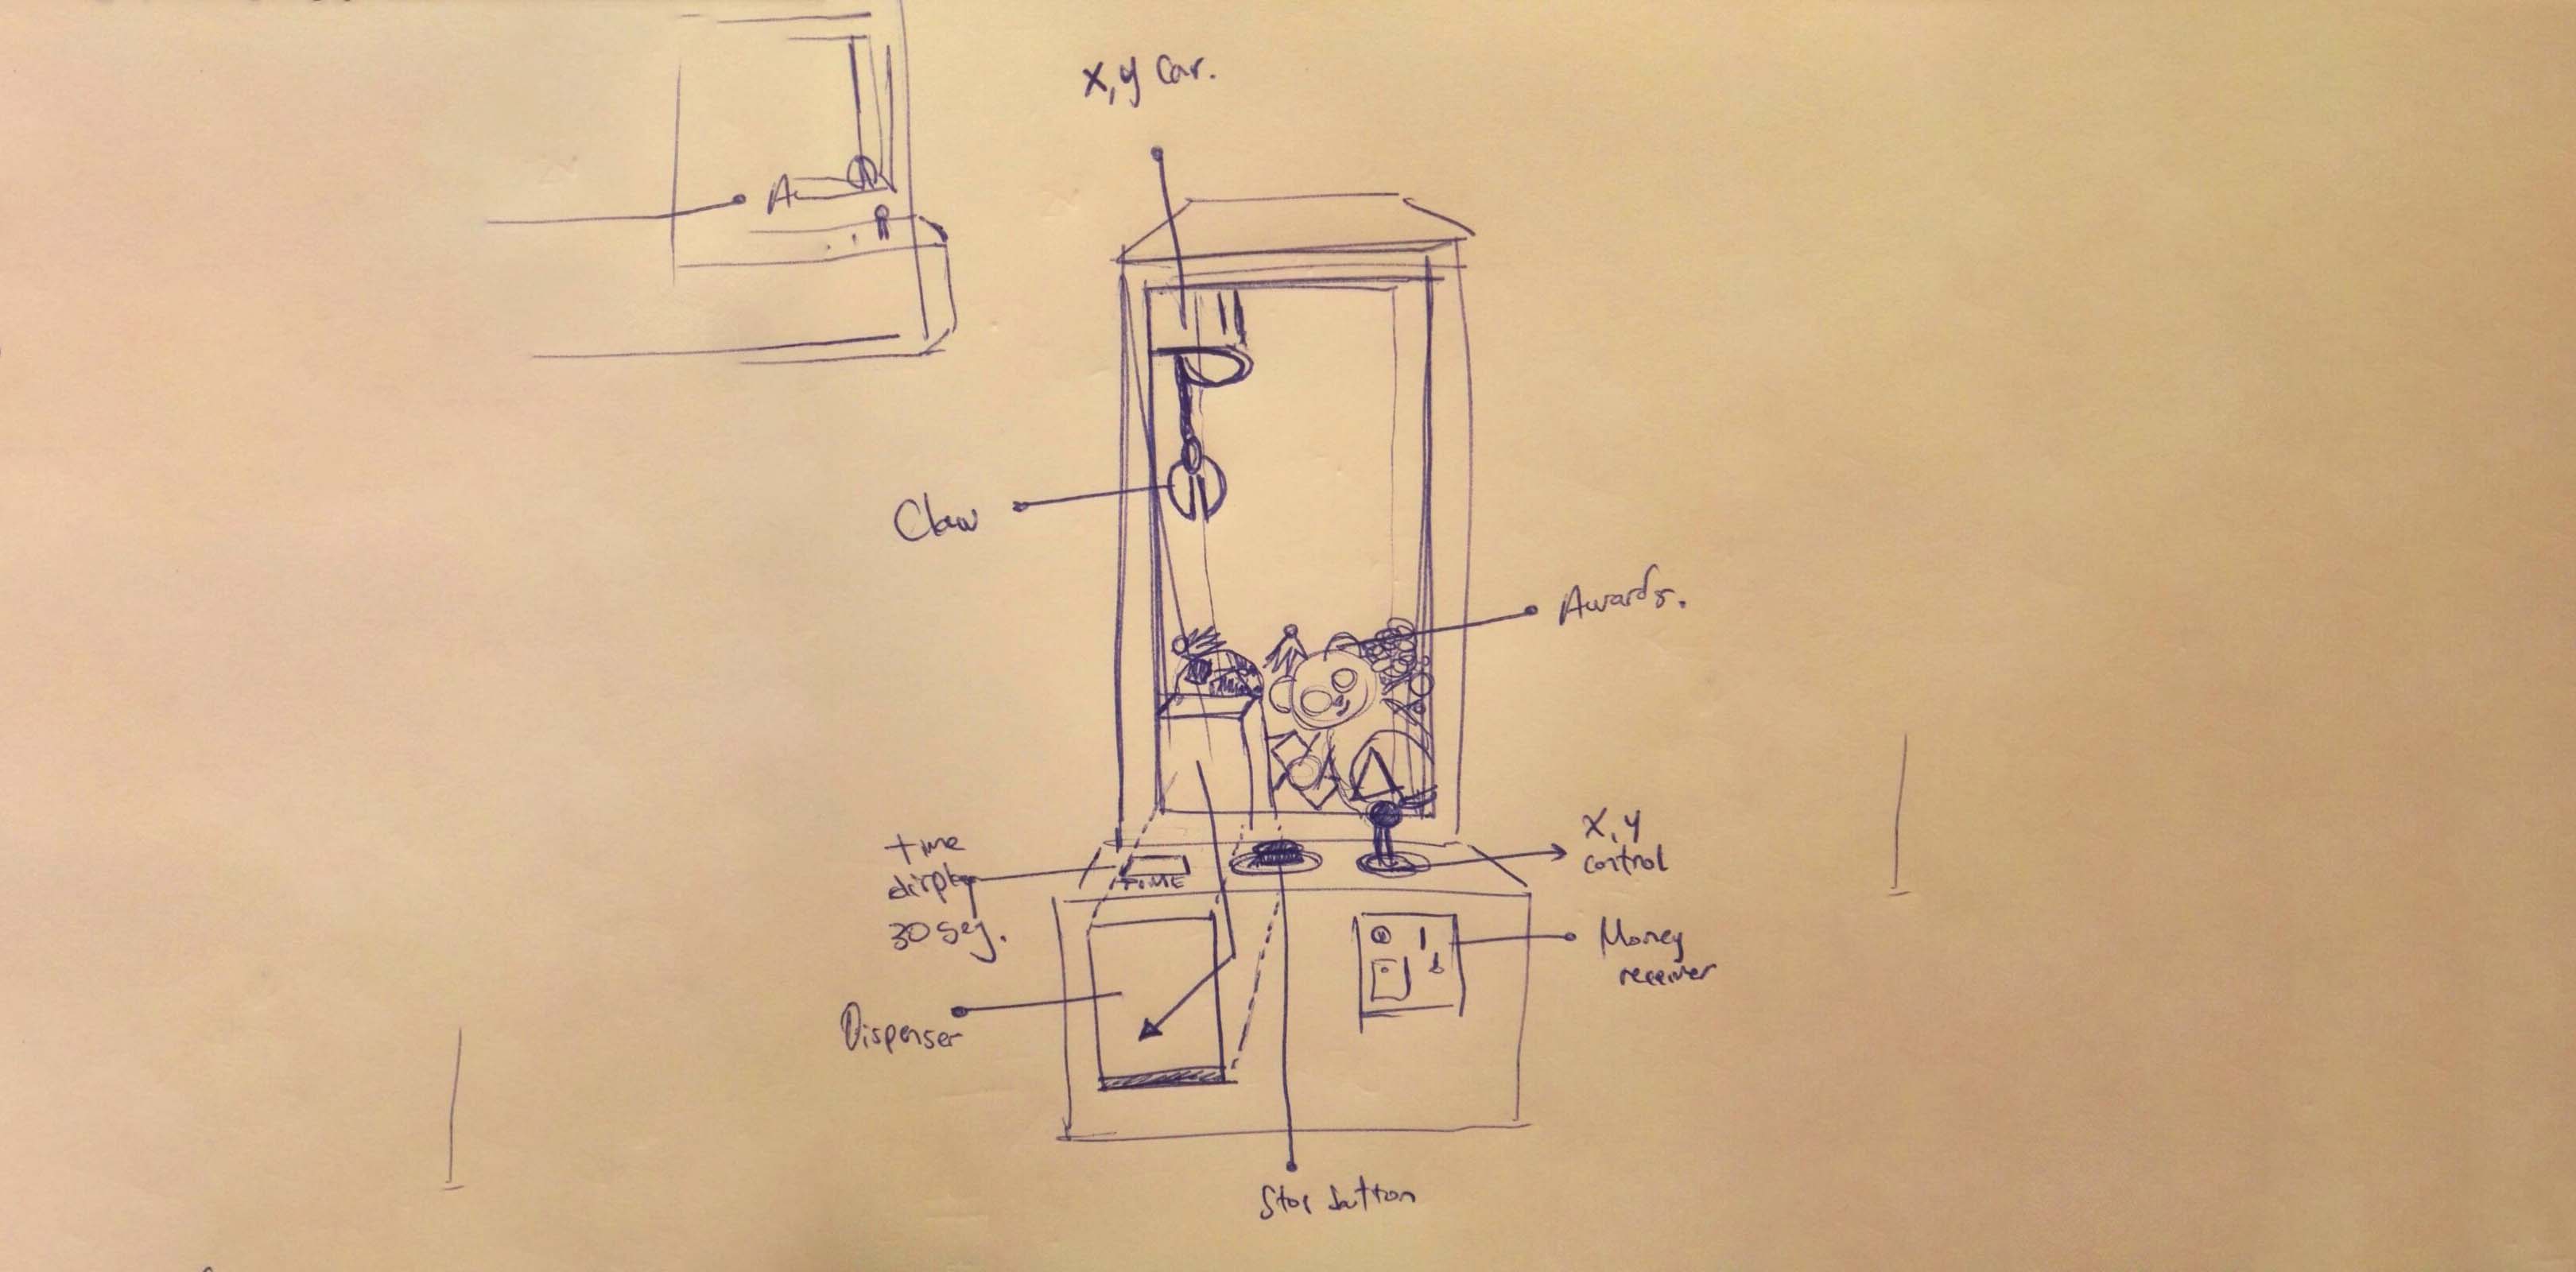 x, y Car.
Claw
Awards.
time
display
30 seg.
TIME
X, Y
control
Money
receiver
Dispenser
Stop button